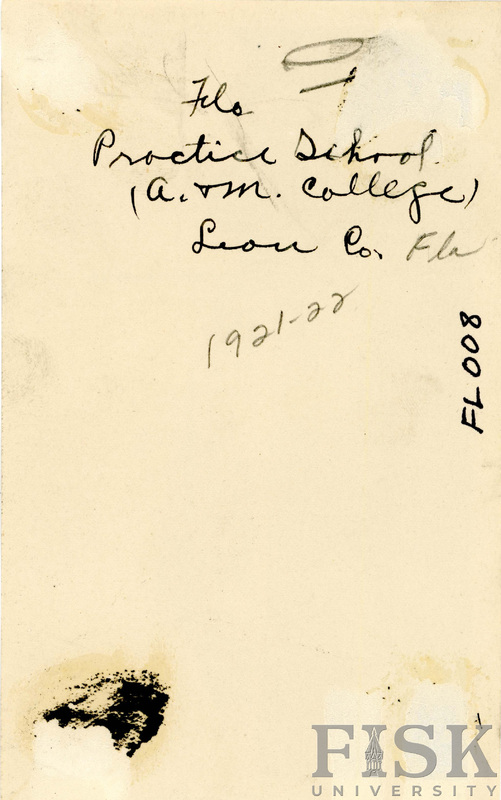 Fla
Practice School
(A. & M. College)
Leon Co. Fla
1921-22
FL008
FISK
UNIVERSITY